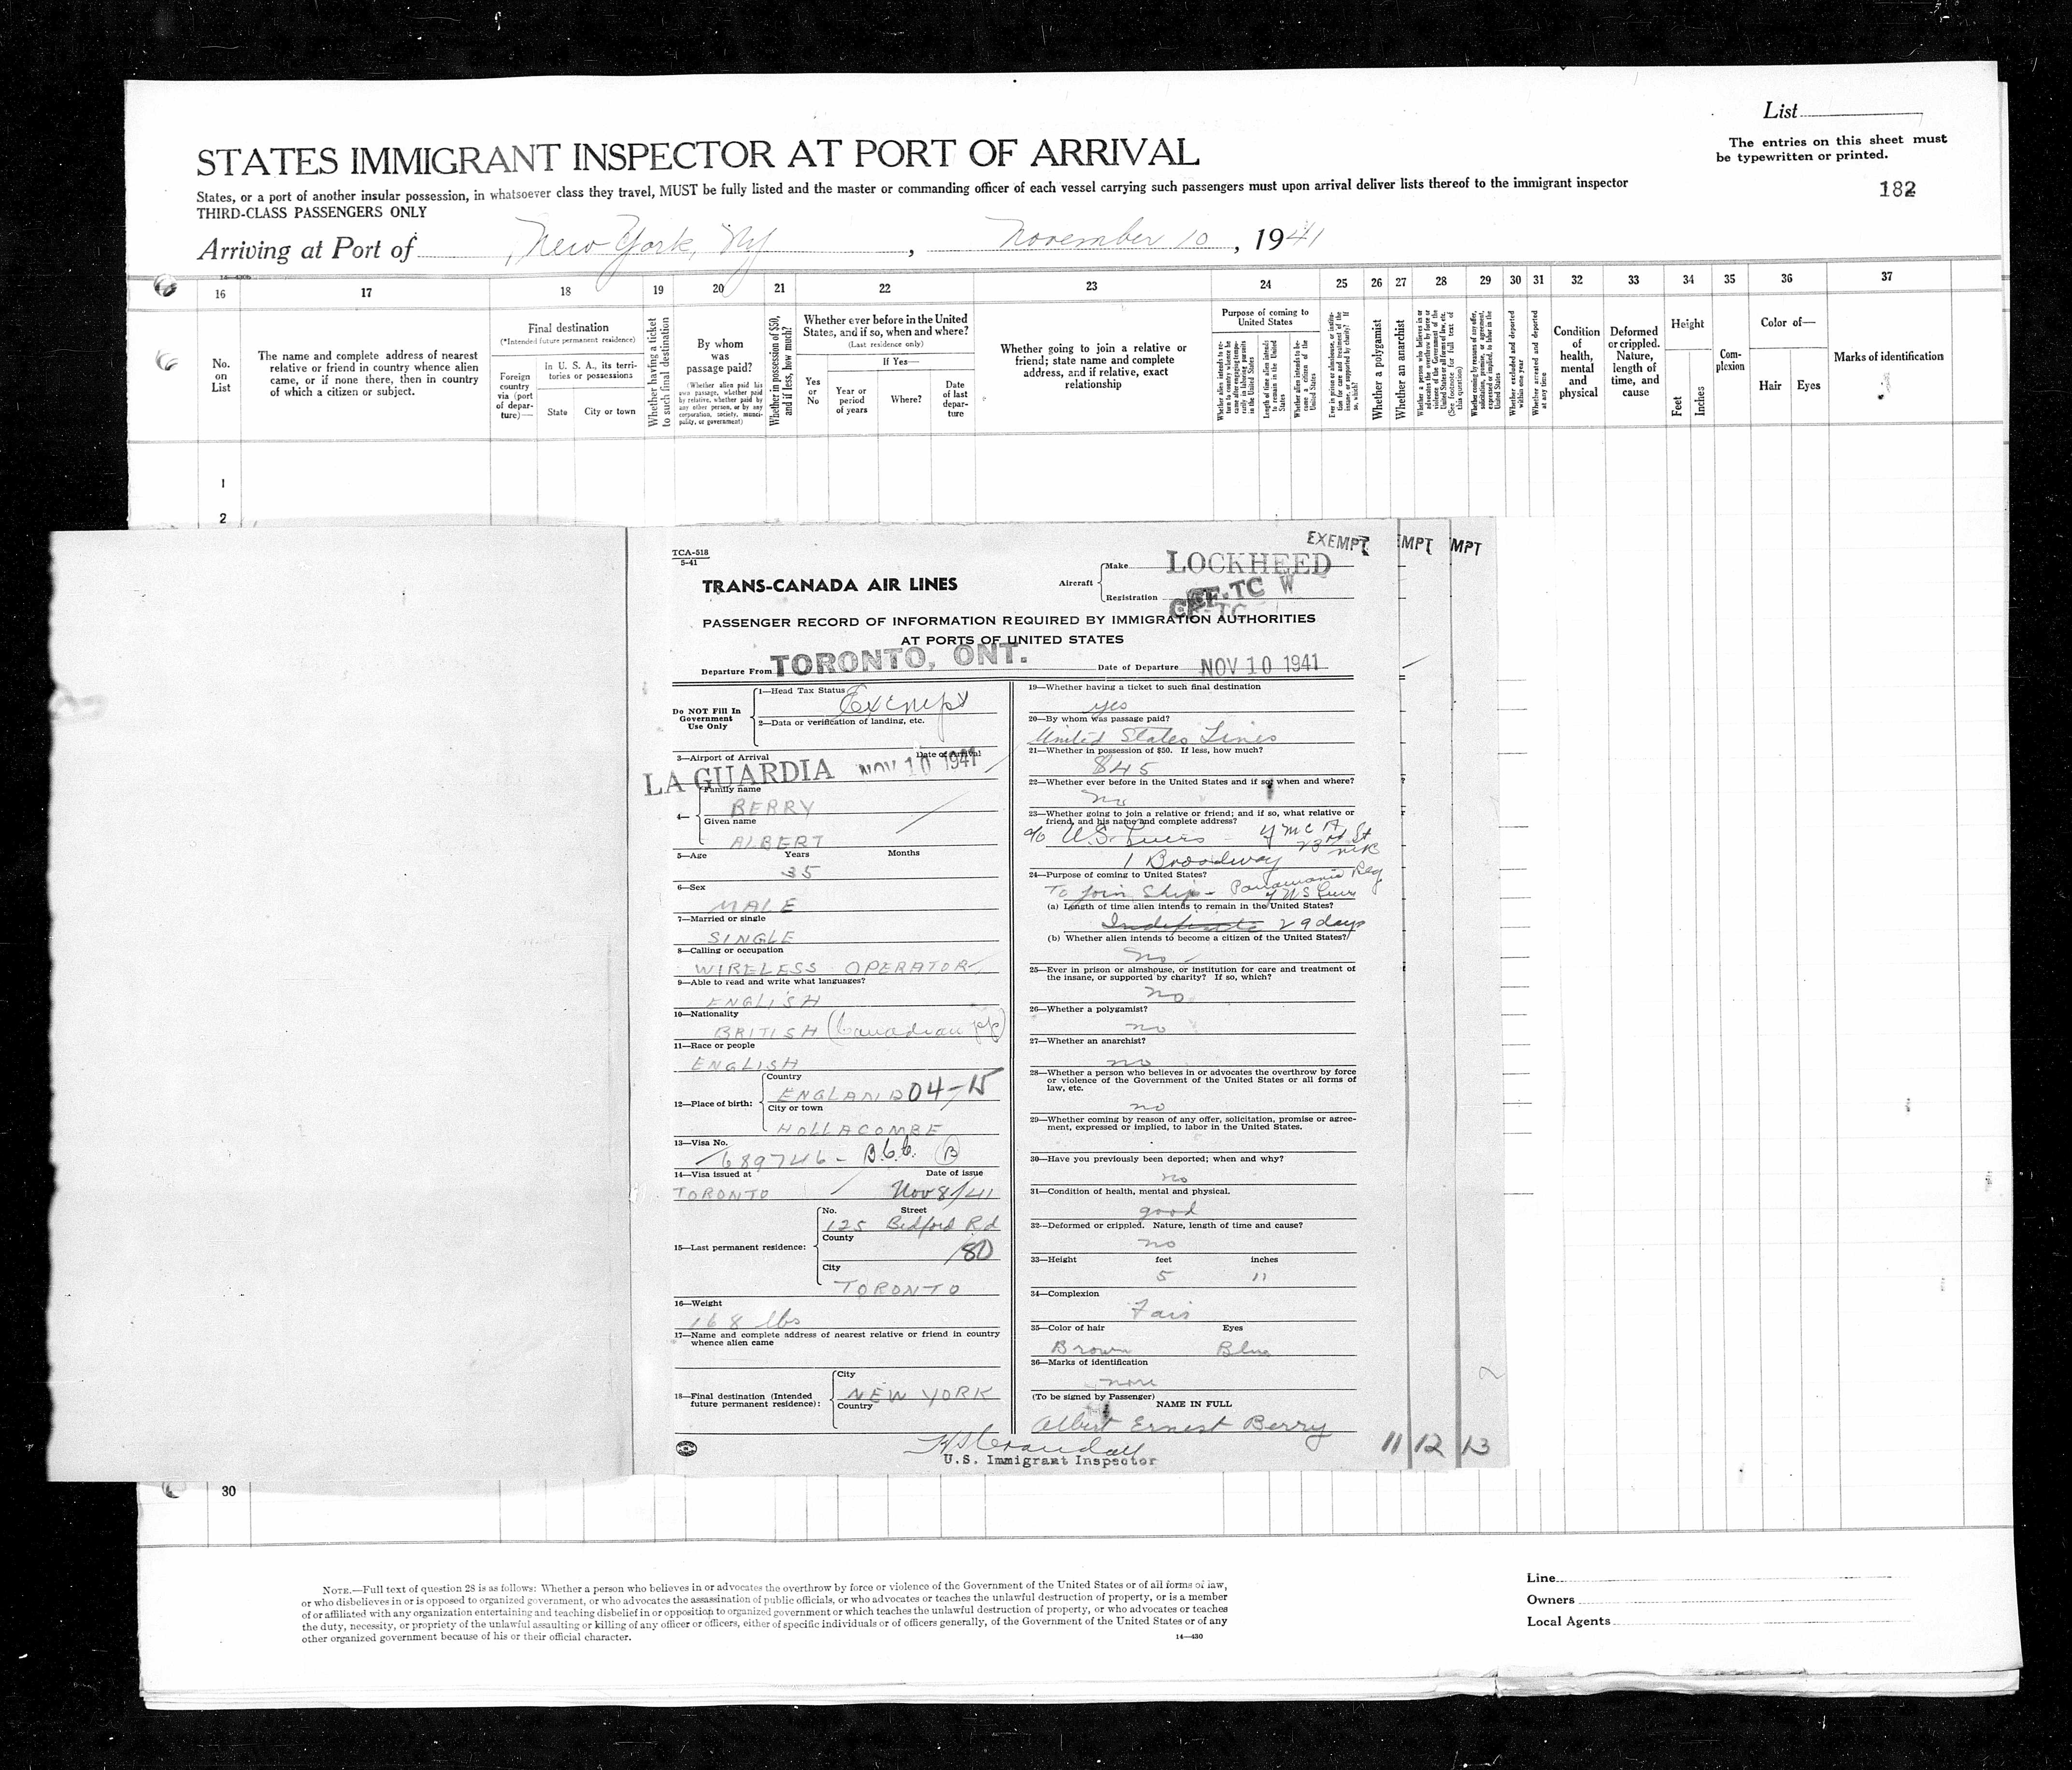 List
The entries on this sheet must
be typewritten or printed.
182
STATES IMMIGRANT INSPECTOR AT PORT OF ARRIVAL
States, or a port of another insular possession, in whatsoever class they travel, MUST be fully listed and the master or commanding officer of each vessel carrying such passengers must upon arrival deliver lists thereof to the immigrant inspector
THIRD-CLASS PASSENGERS ONLY
Arriving at Port of New York, NY, November 10, 1941
16 17 18 19 20 21 22 23 24 25 26 27 28 29 30 31 32 33 34 35 36 37
No. on List
The name and complete address of nearest
relative or friend in country whence alien
came, or if none there, then in country
of which a citizen or subject.
Final destination
(*Intended future permanent residence)
Foreign
country
via (port
of depar-
ture)—
In U. S. A., its terri-
tories or possessions
State
City or town
Whether having a ticket
to such final destination
By whom
was
passage paid?
(Whether alien paid his
own passage, whether paid
by relative, whether paid by
any other person, or by any
corporation, society, munici-
pality, or government)
Whether in possession of $50,
and if less, how much?
Whether ever before in the United
States, and if so, when and where?
(Last residence only)
Yes
or
No
If Yes—
Year or
period
of years
Where?
Date
of last
depar-
ture
Whether going to join a relative or
friend; state name and complete
address, and if relative, exact
relationship
Purpose of coming to
United States
Whether a polygamist
Whether an anarchist
Whether excluded and deported
within one year
Whether arrested and deported
at any time
Condition
of
health,
mental
and
physical
Deformed
or crippled.
Nature,
length of
time, and
cause
Height
Feet
Inches
Com-
plexion
Color of—
Hair
Eyes
Marks of identification
1
2
EXEMPT
MPT
MPT
TCA-518
5-41
TRANS-CANADA AIR LINES
Aircraft
Make LOCKHEED
Registration CF-TC W
CF-TC
PASSENGER RECORD OF INFORMATION REQUIRED BY IMMIGRATION AUTHORITIES
AT PORTS OF UNITED STATES
Departure From TORONTO, ONT. Date of Departure NOV 10 1941
Do NOT Fill In
Government
Use Only
1—Head Tax Status Exempt
2—Data or verification of landing, etc.
3—Airport of Arrival Date of Arrival
LA GUARDIA NOV 10 1941
4—
Family name
BERRY
Given name
ALBERT
5—Age Years Months
35
6—Sex
MALE
7—Married or single
SINGLE
8—Calling or occupation
WIRELESS OPERATOR
9—Able to read and write what languages?
ENGLISH
10—Nationality
BRITISH (Canadian pp)
11—Race or people
ENGLISH
12—Place of birth:
Country
ENGLAND 04-15
City or town
HOLLACOMBE
13—Visa No.
689746 - B.C.C. B
14—Visa issued at Date of issue
TORONTO Nov 8/41
15—Last permanent residence:
No. Street
125 Bedford Rd
County
80
City
TORONTO
16—Weight
168 lbs
17—Name and complete address of nearest relative or friend in country
whence alien came
18—Final destination (Intended
future permanent residence):
City
NEW YORK
Country
19—Whether having a ticket to such final destination
yes
20—By whom was passage paid?
United States Lines
21—Whether in possession of $50. If less, how much?
845
22—Whether ever before in the United States and if so, when and where?
no
23—Whether going to join a relative or friend; and if so, what relative or
friend, and his name and complete address?
c/o U.S. Lines YMCA
1 Broadway 23rd St
24—Purpose of coming to United States?
To join Ship - Panamania Reg
of US Lines
(a) Length of time alien intends to remain in the United States?
Indefinite 29 days
(b) Whether alien intends to become a citizen of the United States?
No
25—Ever in prison or almshouse, or institution for care and treatment of
the insane, or supported by charity? If so, which?
no
26—Whether a polygamist?
no
27—Whether an anarchist?
no
28—Whether a person who believes in or advocates the overthrow by force
or violence of the Government of the United States or all forms of
law, etc.
no
29—Whether coming by reason of any offer, solicitation, promise or agree-
ment, expressed or implied, to labor in the United States.
30—Have you previously been deported; when and why?
no
31—Condition of health, mental and physical.
good
32—Deformed or crippled. Nature, length of time and cause?
no
33—Height feet inches
5 11
34—Complexion
Fair
35—Color of hair Eyes
Brown Blue
36—Marks of identification
none
(To be signed by Passenger)
NAME IN FULL
Albert Ernest Berry
U.S. Immigrant Inspector
11 12 13
30
NOTE.—Full text of question 28 is as follows: Whether a person who believes in or advocates the overthrow by force or violence of the Government of the United States or of all forms of law,
or who disbelieves in or is opposed to organized government, or who advocates the assassination of public officials, or who advocates or teaches the unlawful destruction of property, or is a member
of or affiliated with any organization entertaining and teaching disbelief in or opposition to organized government or which teaches the unlawful destruction of property, or who advocates or teaches
the duty, necessity, or propriety of the unlawful assaulting or killing of any officer or officers, either of specific individuals or of officers generally, of the Government of the United States or of any
other organized government because of his or their official character.
14—430
Line
Owners
Local Agents